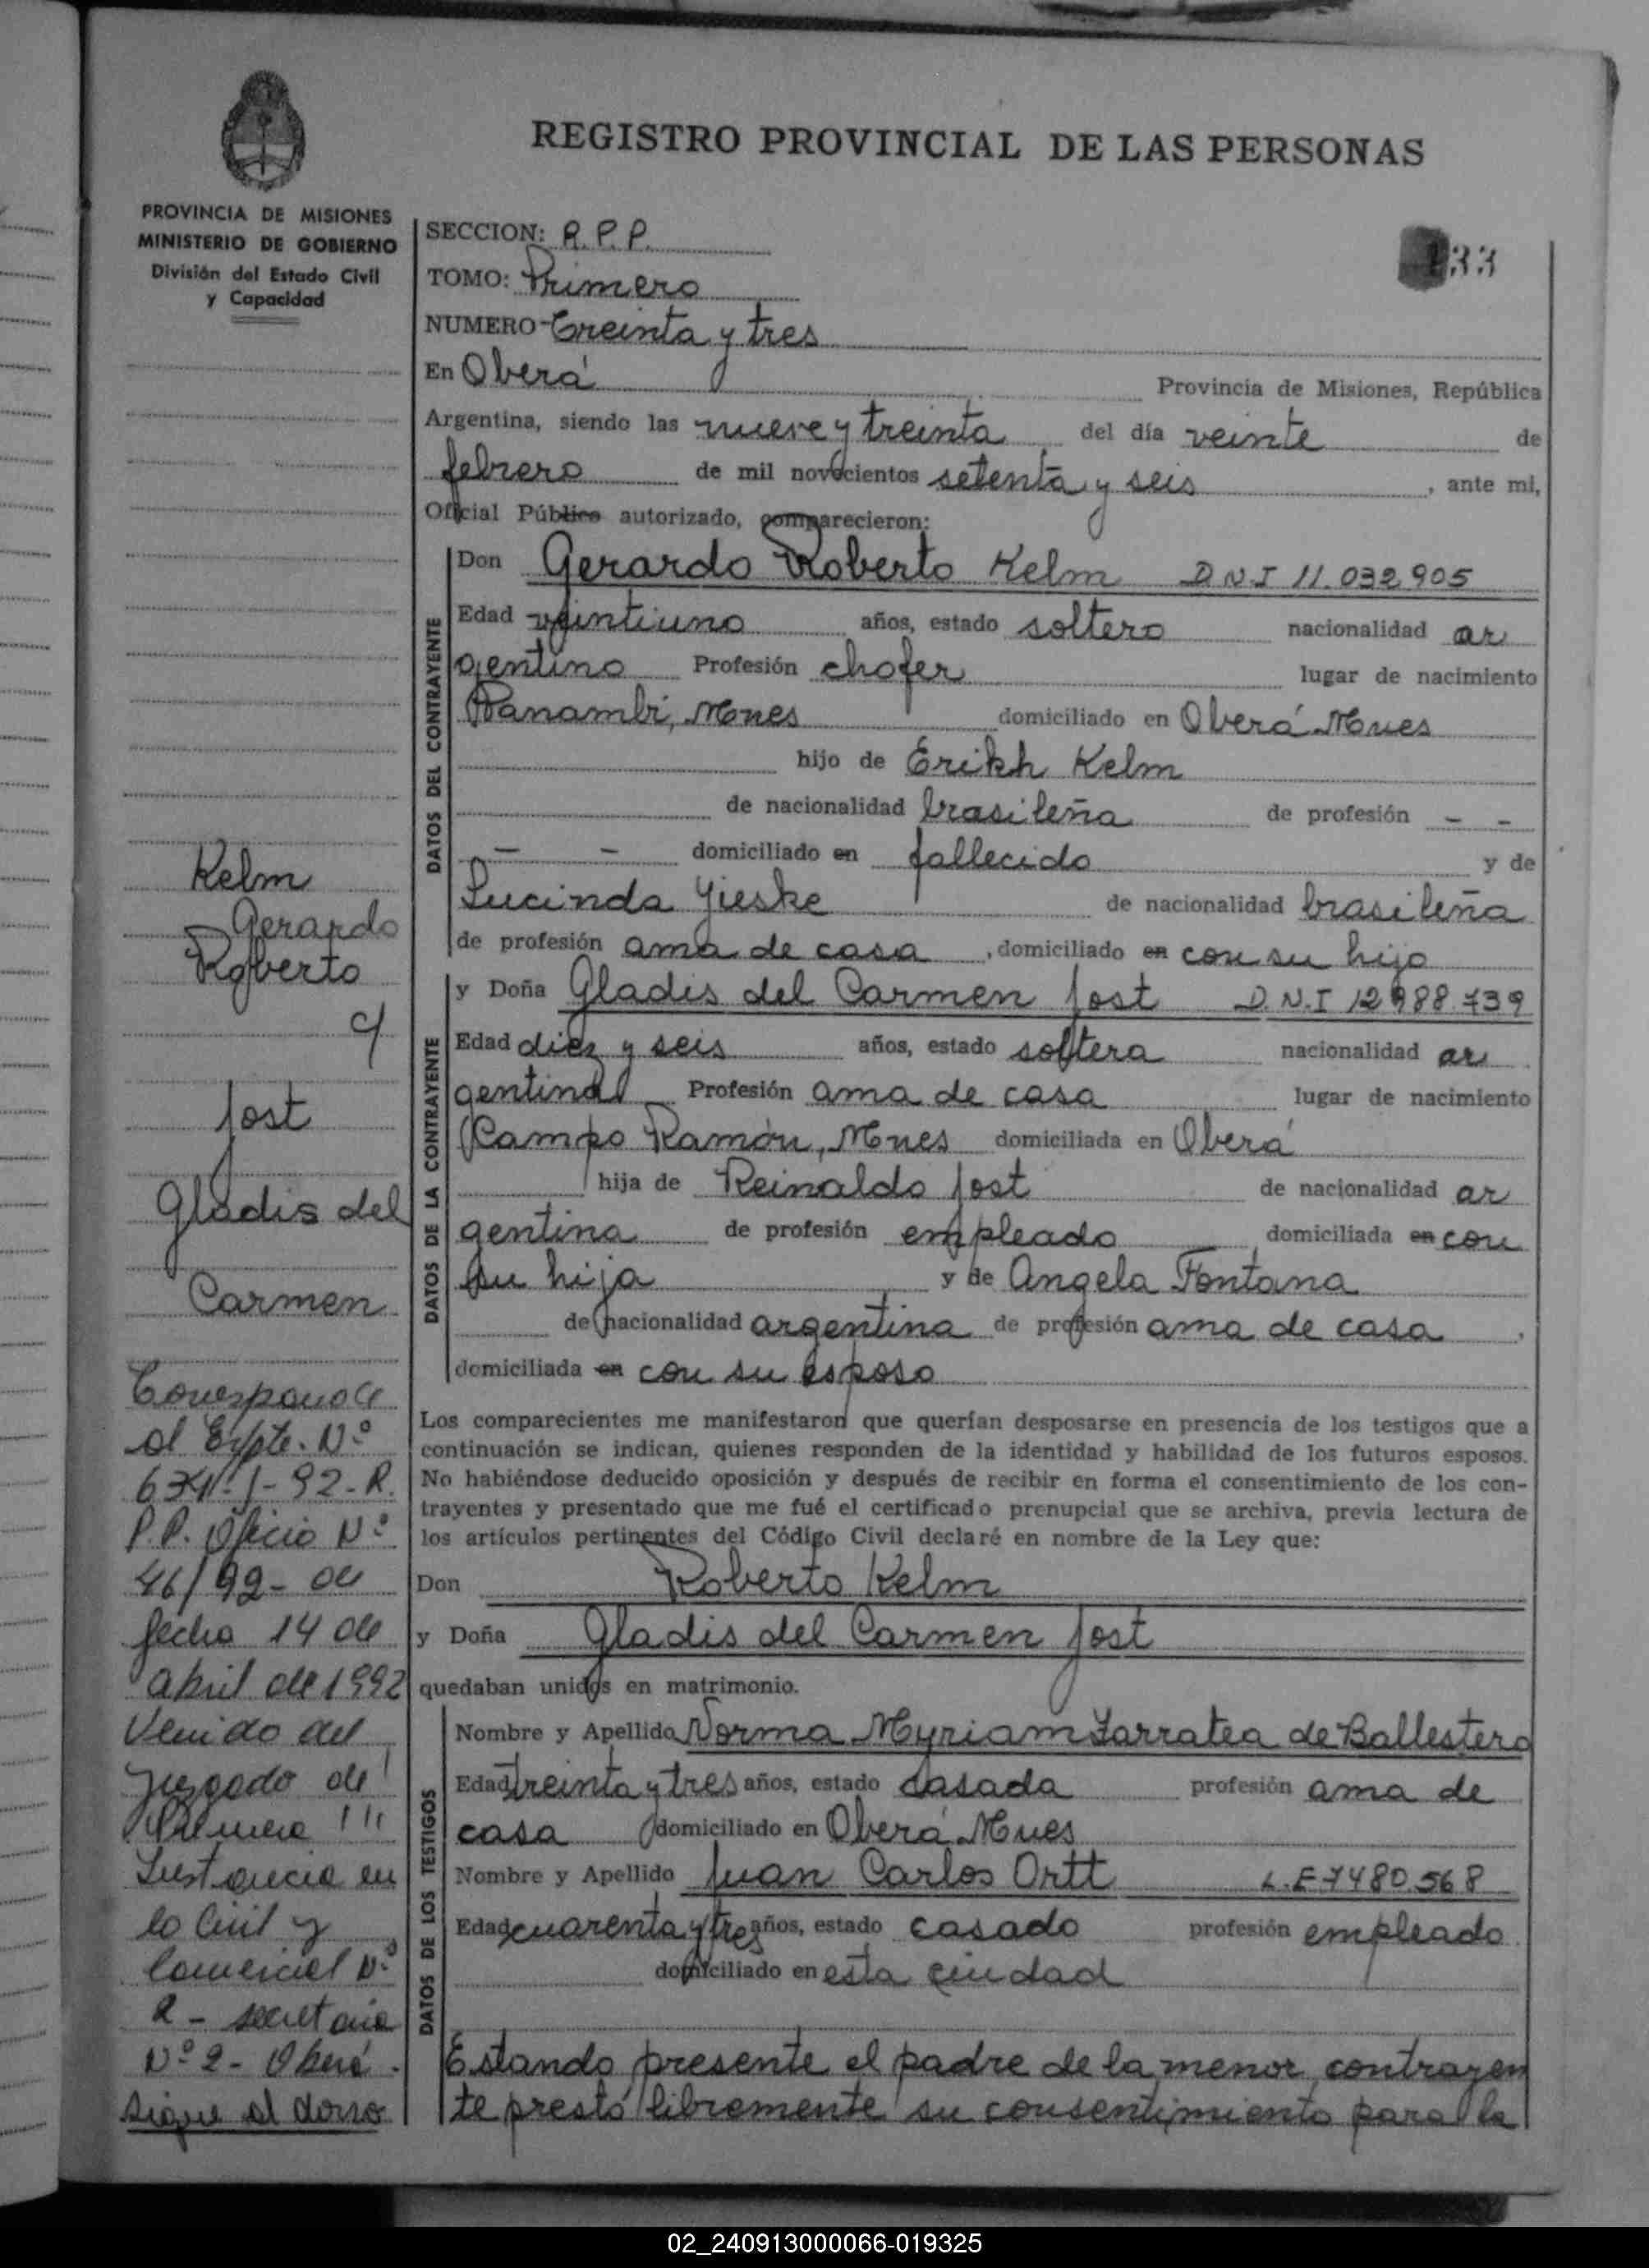 REGISTRO PROVINCIAL DE LAS PERSONAS
PROVINCIA DE MISIONES
MINISTERIO DE GOBIERNO
División del Estado Civil
y Capacidad
33
SECCION: R.P.P.
TOMO: Primero
NUMERO Treinta y tres
En Oberá Provincia de Misiones, República
Argentina, siendo las nueve y treinta del día veinte de
febrero de mil novecientos setenta y seis, ante mi,
Oficial Público autorizado, comparecieron:
DATOS DEL CONTRAYENTE
Don Gerardo Roberto Kelm D.N.I 11.032.905
Edad veintiuno años, estado soltero nacionalidad ar
gentino Profesión chofer lugar de nacimiento
Panambi, Mnes domiciliado en Oberá Mnes
hijo de Erikh Kelm
de nacionalidad brasileña de profesión - -
- - domiciliado en fallecido y de
Lucinda Yieske de nacionalidad brasileña
de profesión ama de casa, domiciliado en con su hijo
DATOS DE LA CONTRAYENTE
y Doña Gladis del Carmen Jost D.N.I 12.988.739
Edad diez y seis años, estado soltera nacionalidad ar
gentina Profesión ama de casa lugar de nacimiento
Campo Ramón, Mnes domiciliada en Oberá
hija de Reinaldo Jost de nacionalidad ar
gentina de profesión empleado, domiciliada en con
su hija y de Angela Fontana
de nacionalidad argentina de profesión ama de casa,
domiciliada en con su esposo
Los comparecientes me manifestaron que querían desposarse en presencia de los testigos que a
continuación se indican, quienes responden de la identidad y habilidad de los futuros esposos.
No habiéndose deducido oposición y después de recibir en forma el consentimiento de los con-
trayentes y presentado que me fué el certificado prenupcial que se archiva, previa lectura de
los artículos pertinentes del Código Civil declaré en nombre de la Ley que:
Don Roberto Kelm
y Doña Gladis del Carmen Jost
quedaban unidos en matrimonio.
DATOS DE LOS TESTIGOS
Nombre y Apellido Norma Myriam Larratea de Ballestero
Edad treinta y tres años, estado casada profesión ama de
casa domiciliado en Oberá Mnes
Nombre y Apellido Juan Carlos Ortt L.E 7480.568
Edad cuarenta y tres años, estado casado profesión empleado
domiciliado en esta ciudad
Estando presente el padre de la menor contrayen
te prestó libremente su consentimiento para la
Kelm
Gerardo
Roberto
c/
Jost
Gladis del
Carmen
Corresponde
al Expte. Nº
-92-R.
P.P. Oficio Nº
46/92- de
fecha 14 de
abril de 1992
Venido del
Juzgado de
Primera
Instancia en
lo Civil y
Comercial Nº
2 - secretaria
Nº 2 - Oberá.
sigue al dorso
02_240913000066-019325